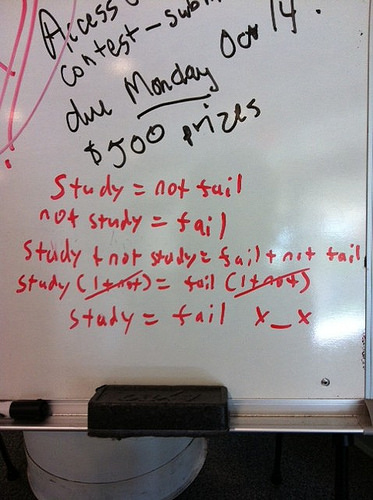 Access
contest - submi
due Monday Oct 14.
$500 prizes
Study = not fail
not study = fail
Study + not study = fail + not fail
study (1+not) = fail (1+not)
study = fail x_x